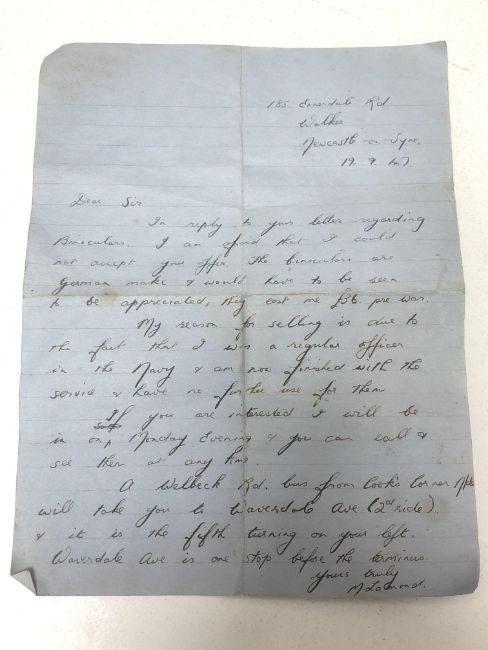 185 Rd
Walker
Newcastle-on-Tyne.
19.9.47.
Dear Sir
In reply to your letter regarding
Binoculars. I am afraid that I could
not accept your offer. The binoculars are
German make & would have to be seen
to be appreciated, they cost me £36 pre war.
My reason for selling is due to
the fact that I was a regular officer
in the Navy & am now finished with the
service & have no further use for them
If you are interested I will be
in on Monday Evening & you can call &
see them at any time.
A Welbeck Rd. bus from Cooks Corner
will take you to Waverdale Ave (2nd side).
& it is the fifth turning on your left.
Waverdale Ave is one stop before the terminus.
yours truly